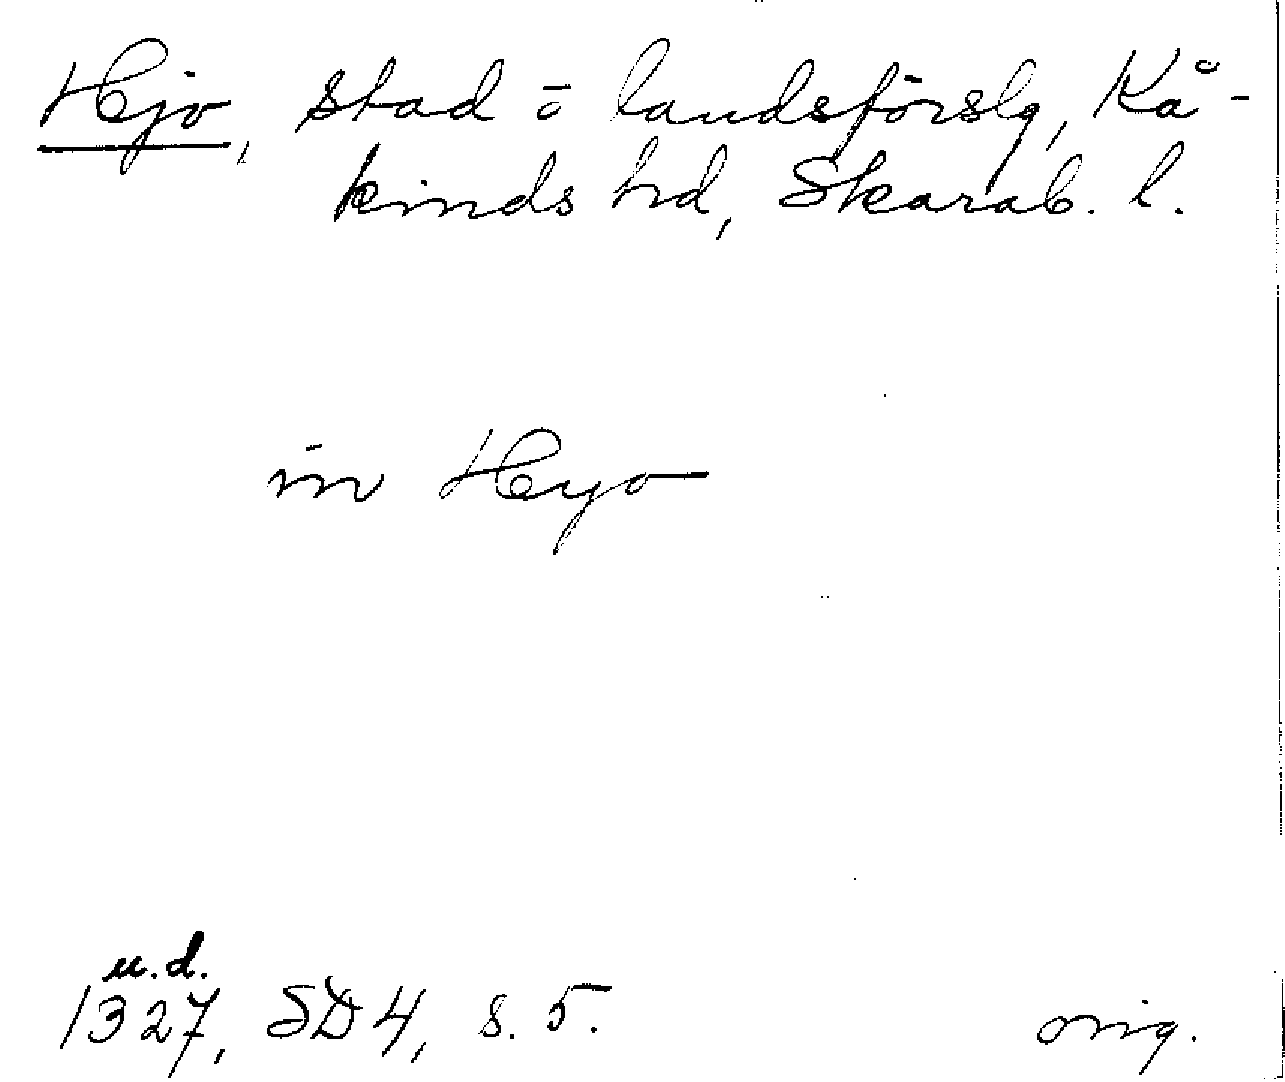 Hjo, stad ö landsförslg, Kå-
kinds hd, Skarab. l.
in Hyo
u.d.
1327, SD 4, s. 5.
orig.